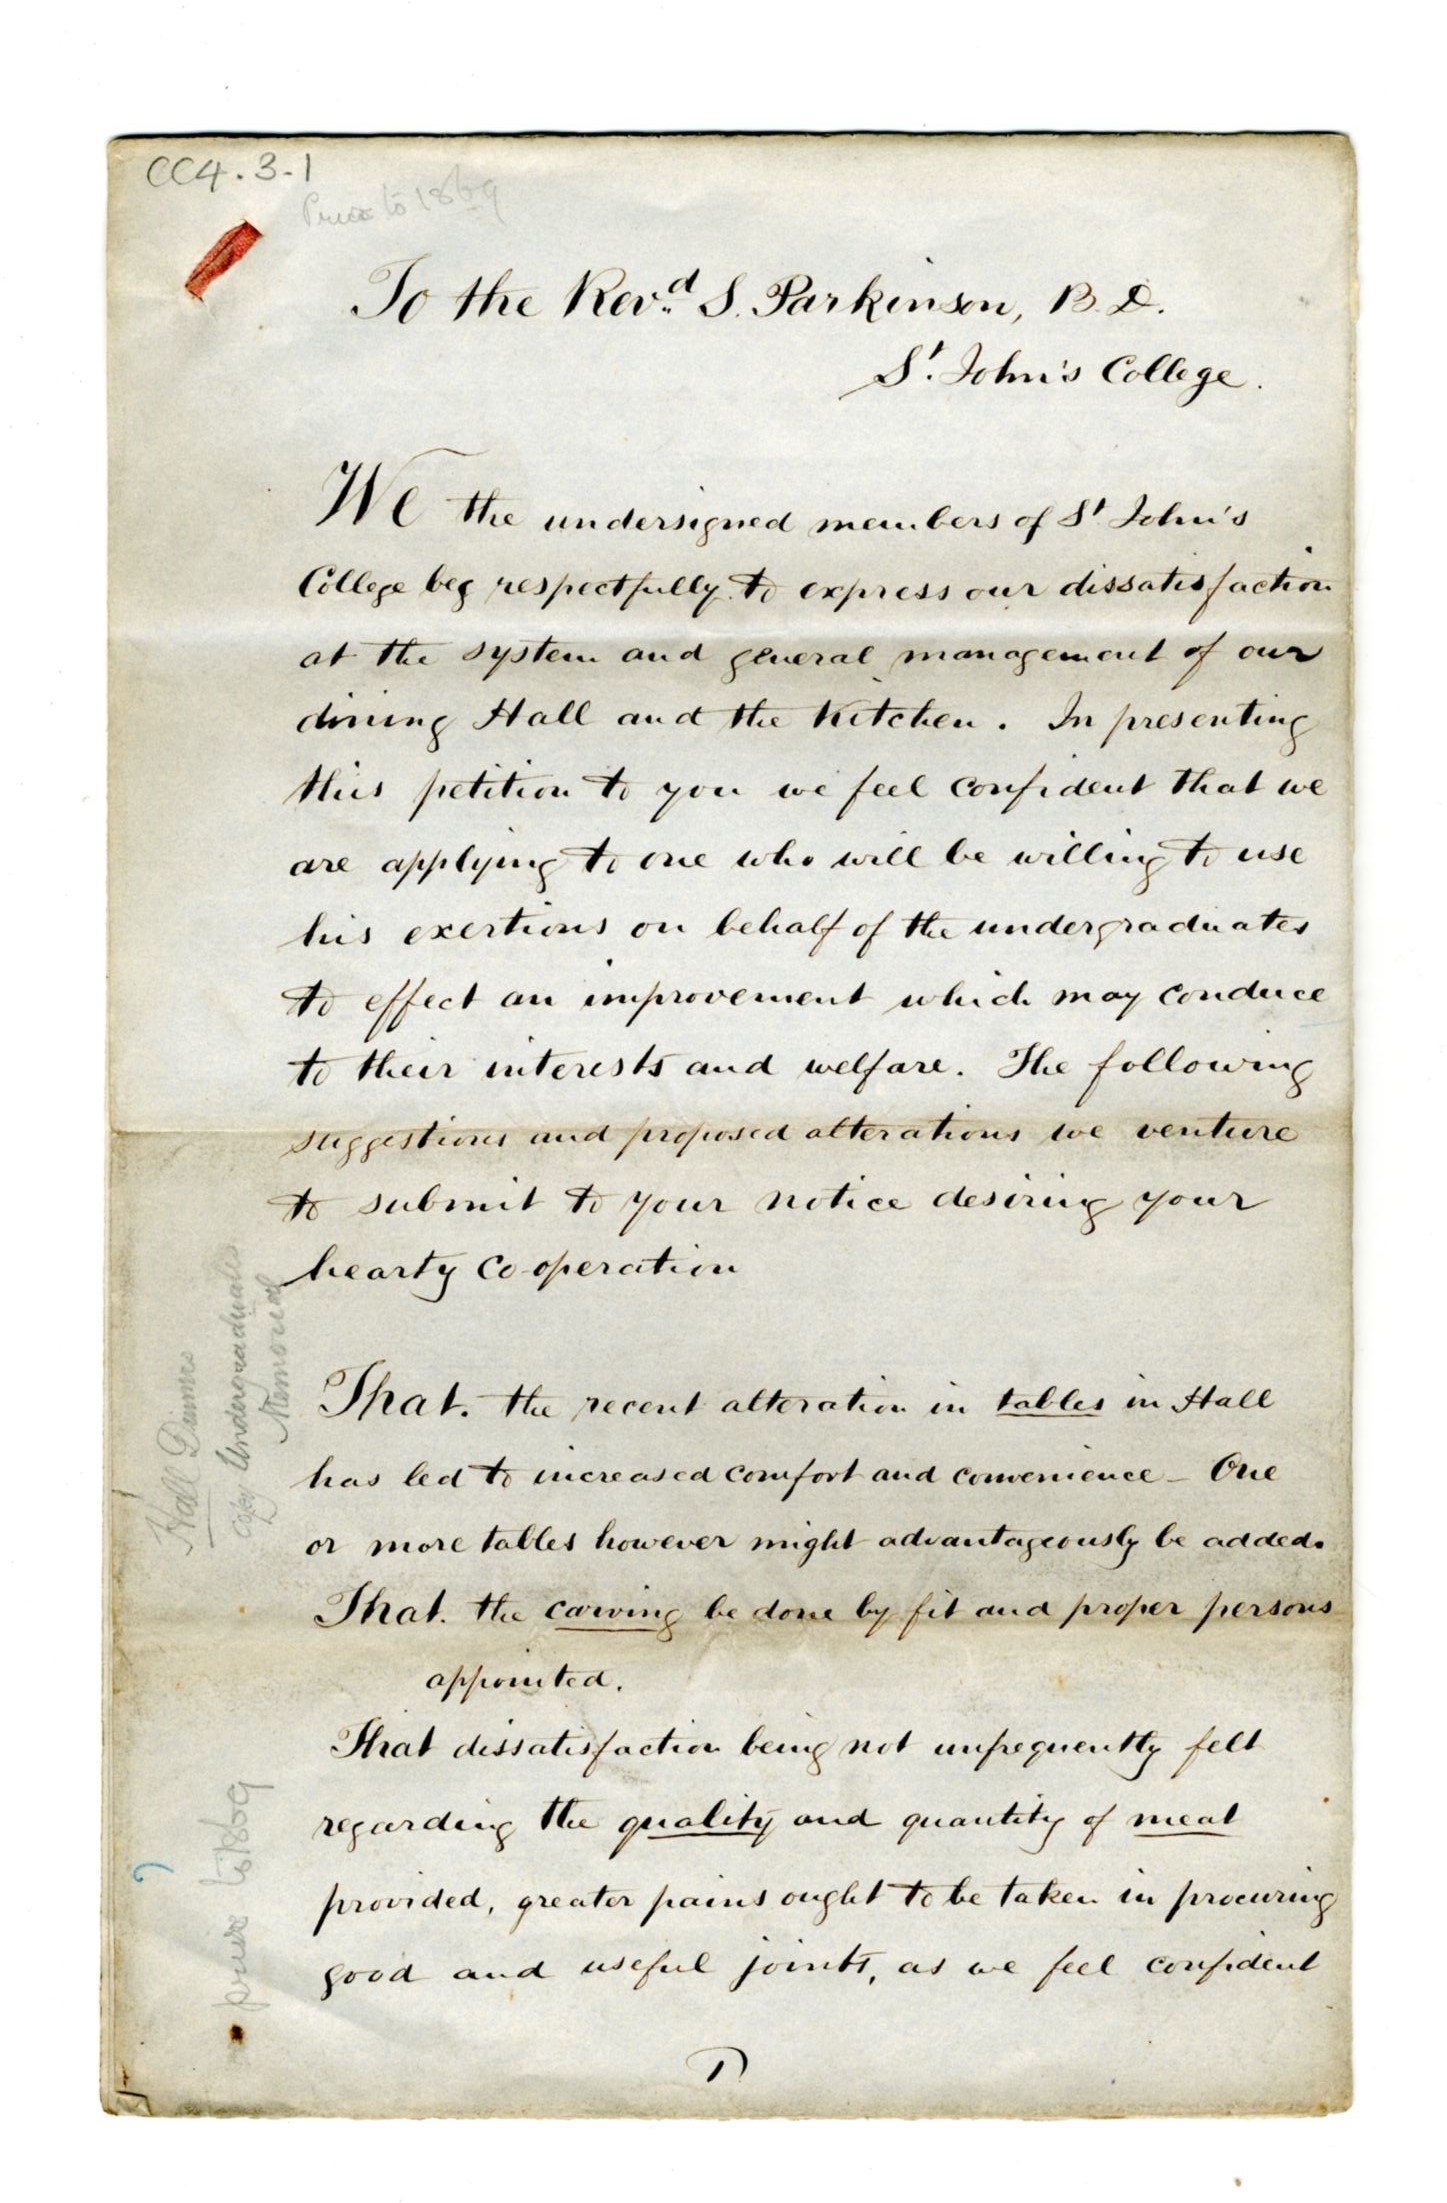 CC4.3-1
Prior to 1869
To the Rev.d S. Parkinson, B.D.
St. John's College.
We the undersigned members of St John's
College beg respectfully to express our dissatisfaction
at the system and general management of our
dining Hall and the Kitchen. In presenting
this petition to you we feel confident that we
are applying to one who will be willing to use
his exertions on behalf of the undergraduates
to effect an improvement which may conduce
to their interests and welfare. The following
suggestions and proposed alterations we venture
to submit to your notice desiring your
hearty co-operation
That. the recent alteration in tables in Hall
has led to increased comfort and convenience - One
or more tables however might advantageously be added.
That. the carving be done by fit and proper persons
appointed.
That dissatisfaction being not unfrequently felt
regarding the quality and quantity of meat
provided, greater pains ought to be taken in procuring
good and useful joints, as we feel confident
Hall Dinners
Copy Undergraduates
Memorial
prior to 1869